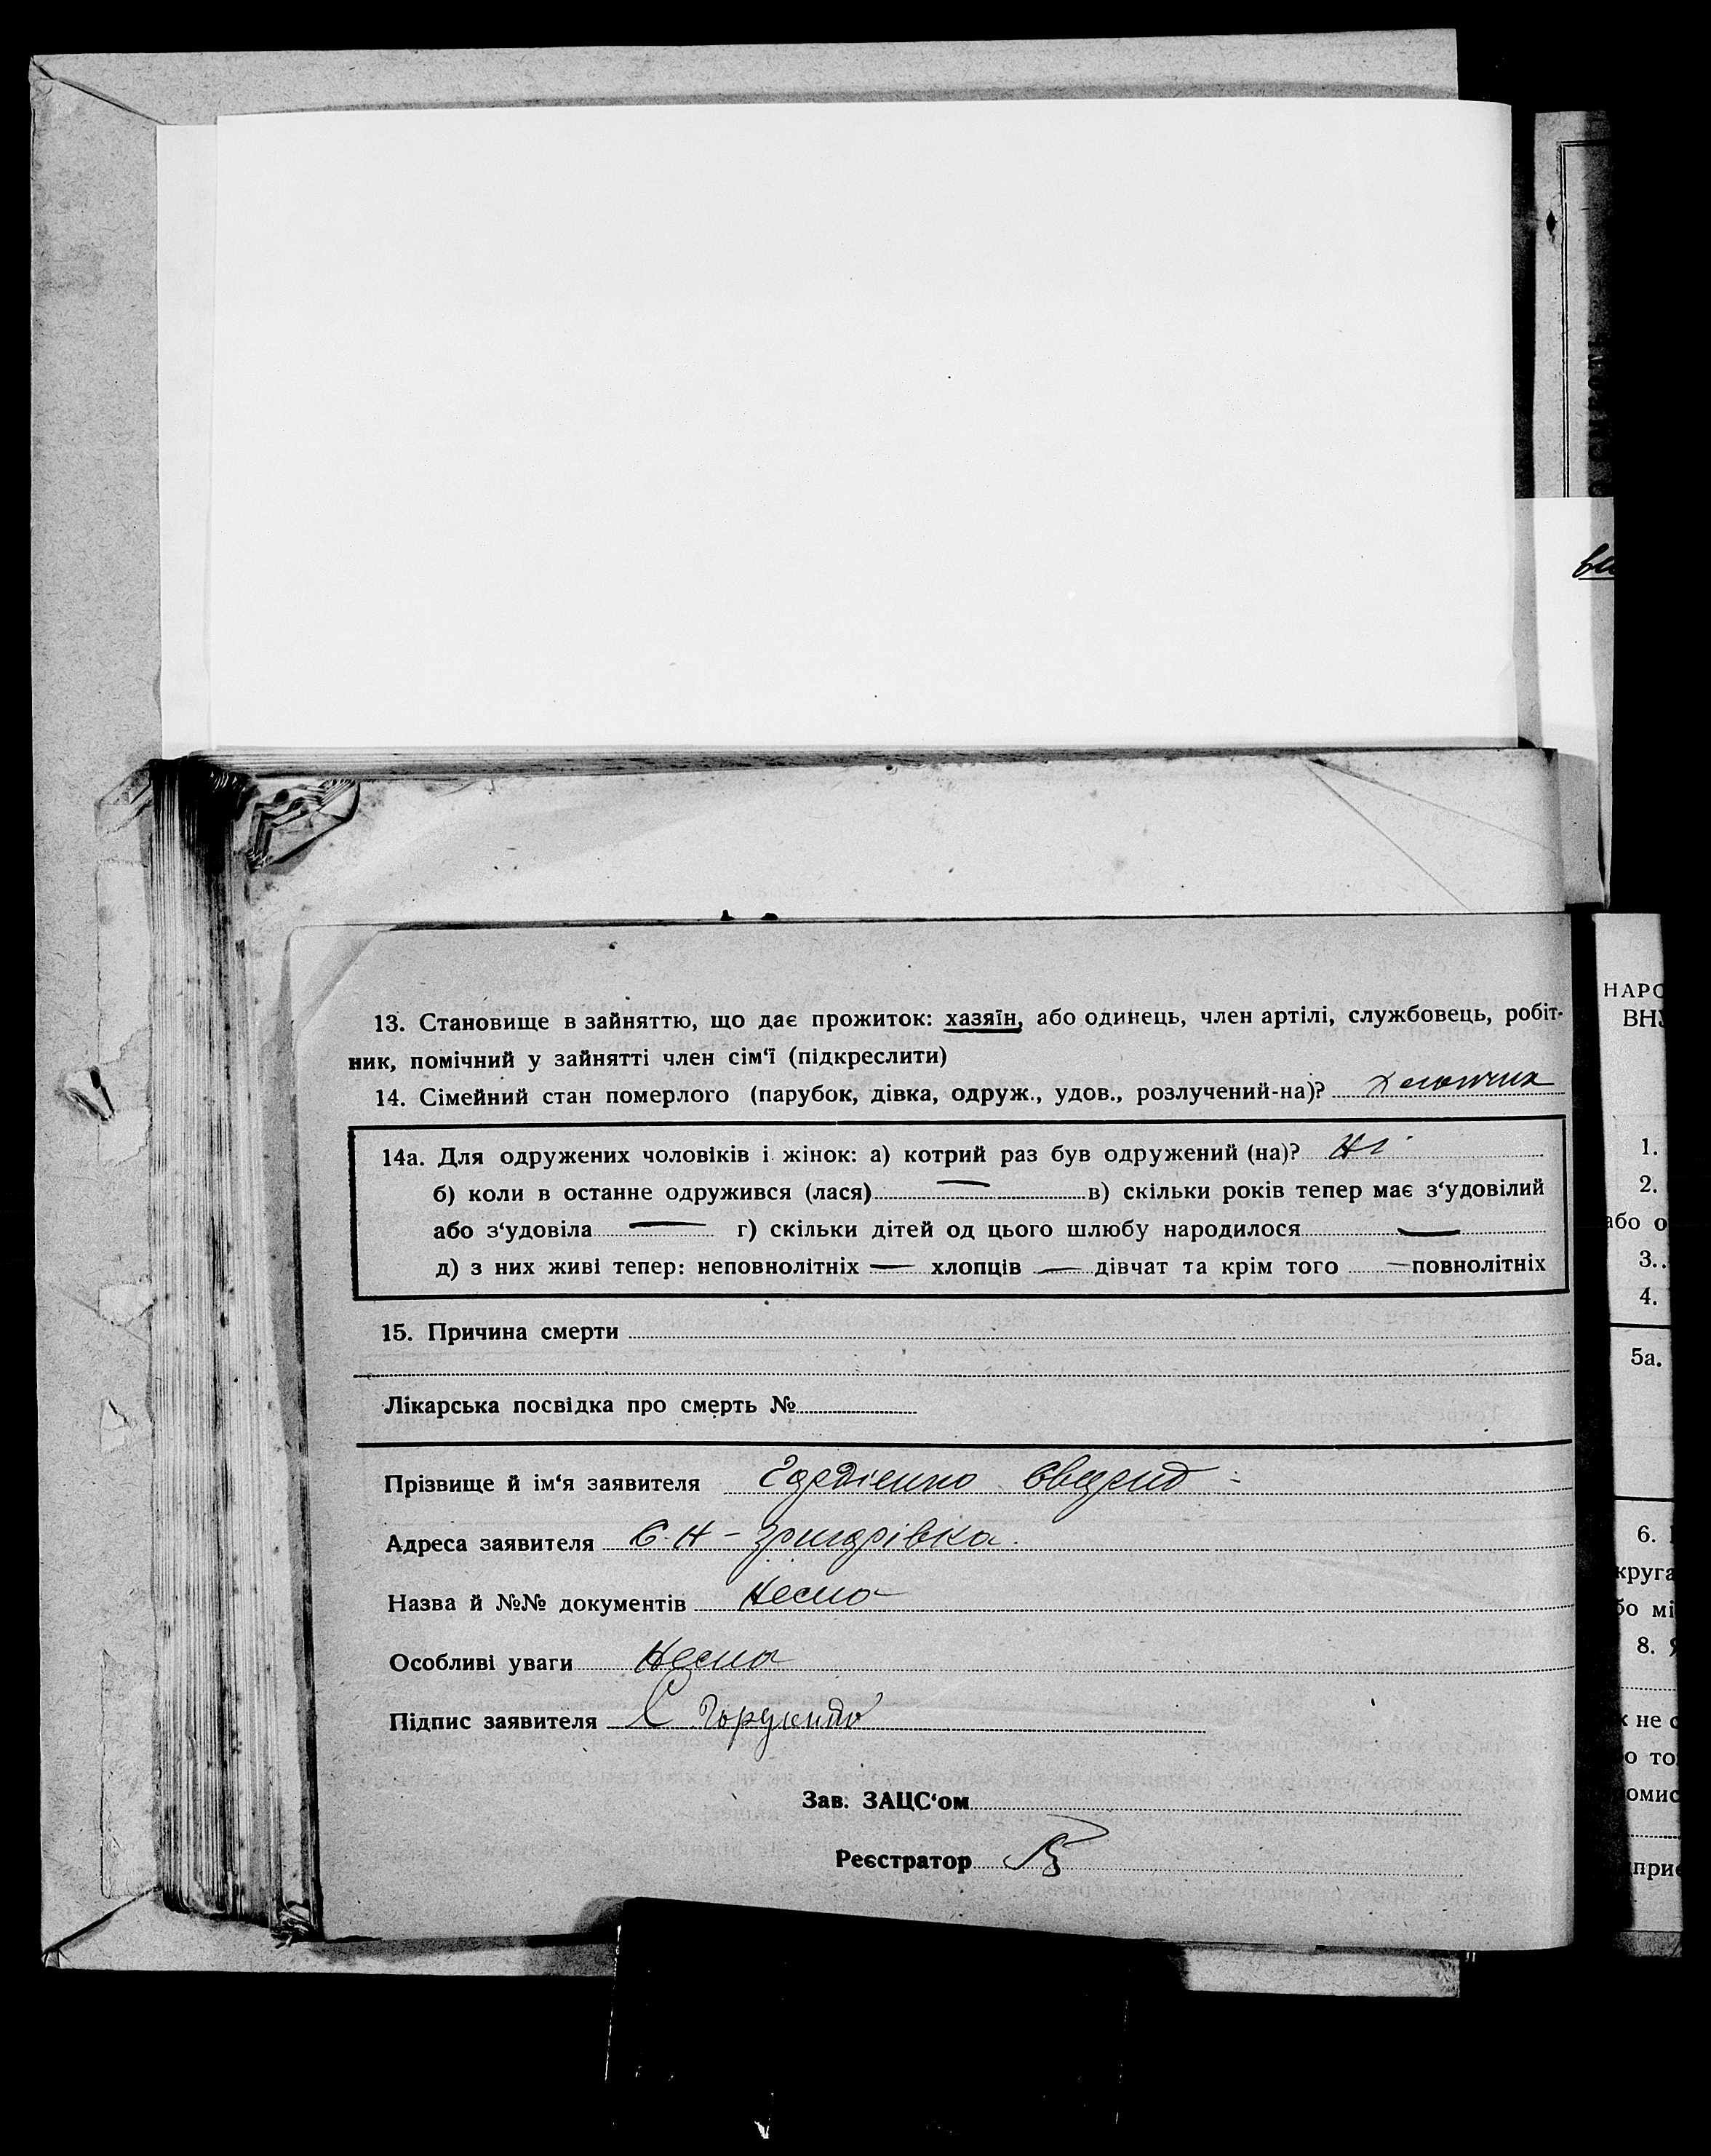 13. Становище в зайняттю, що дає прожиток: хазяїн, або одинець, член артілі, службовець, робіт-
ник, помічний у зайнятті член сім‘ї (підкреслити)
14. Сімейний стан померлого (парубок, дівка, одруж., удов., розлучений-на)?
14а. Для одружених чоловіків і жінок: а) котрий раз був одружений (на)? Ні
б) коли в останне одружився (лася) — в) скільки років тепер має з‘удовілий
або з‘удовіла — г) скільки дітей од цього шлюбу народилося —
д) з них живі тепер: неповнолітніх — хлопців — дівчат та крім того — повнолітніх
15. Причина смерти
Лікарська посвідка про смерть №
Прізвище й ім‘я заявителя
Адреса заявителя С. Н-
Назва й №№ документів Нема
Особливі уваги Нема
Підпис заявителя
Зав. ЗАЦС‘ом
Реєстратор
НАРО
1.
2.
або о
3.
4.
5а.
6.
круга
8.